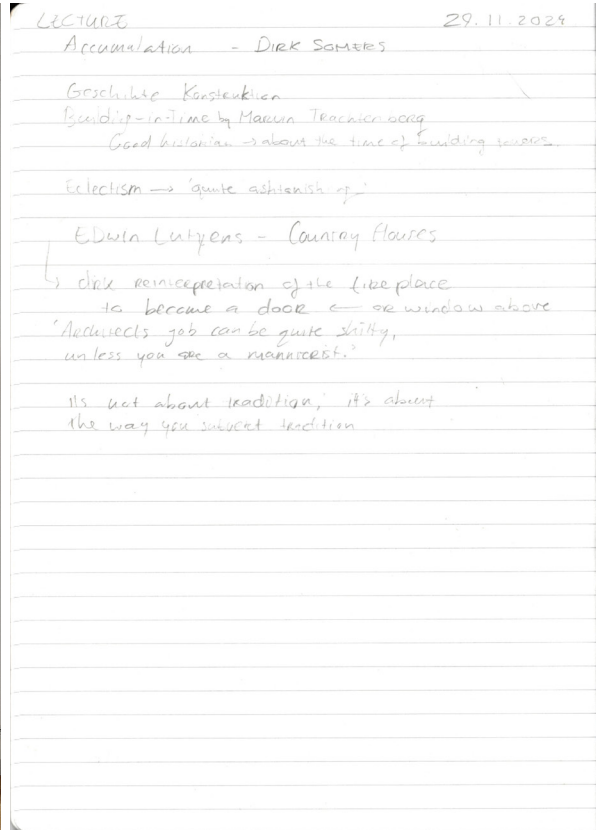 LECTURE 29.11.2024
Accumulation - DIRK SOMERS
Geschichte Konstruktion
Building-in-Time by Marvin Trachtenberg
Good historian → about the time of building towers.
Eclectism → 'quite
EDwin Lutyens - Country Houses
↳ dirk reinterpretation of the fire place
to become a door ← or window above
'Architects job can be quite shitty,
unless you are a mannerist.'
It's not about tradition, it's about
the way you subvert tradition